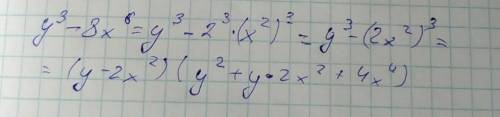 y³-8x⁶=y³-2³·(x²)³=y³-(2x²)³=
=(y-2x²)(y²+y·2x²+4x⁴)